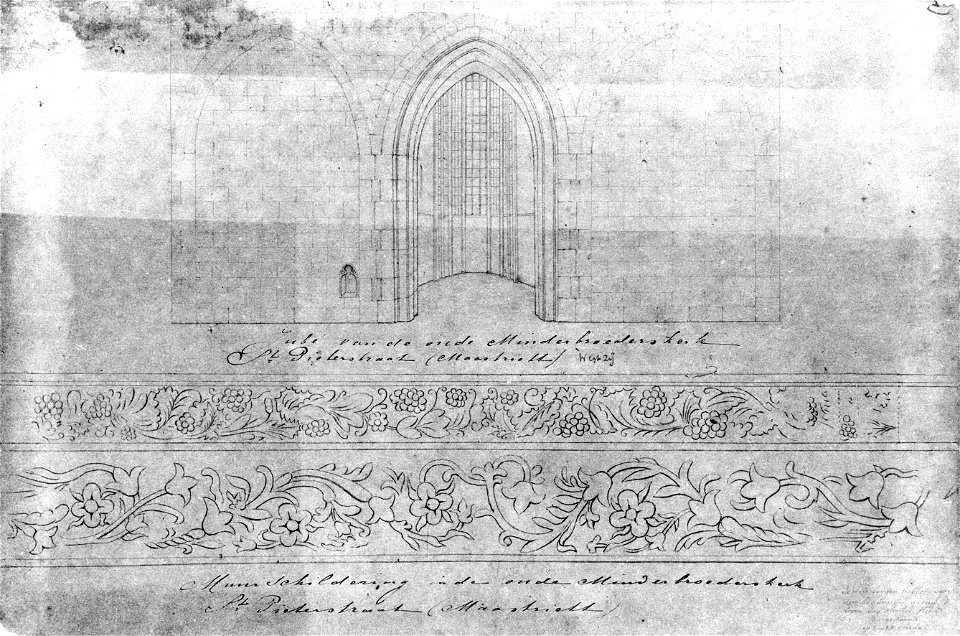 Jubé van de oude Minderbroederskerk
St Pieterstraat (Maastricht) Westzij
Muurschildering in de oude Minderbroederskerk
St Pieterstraat (Maastricht)